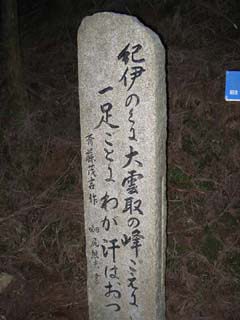 紀伊のくに大雲取の峰ごえに
一足ごとにわが汗はおつ
斉藤茂吉 作